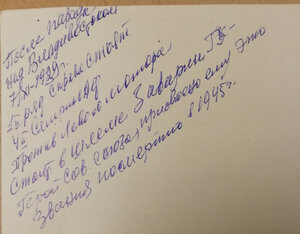 После парада
над Владивостоком
7/XI-1939г.
1й ряд справа стоят
4й Селертин Аф
Против левого мотора
стоит в шлеме Заварин ГВ-
Герой Сов. Союза, присвоено ему это
Звание посмертно в 1945г.